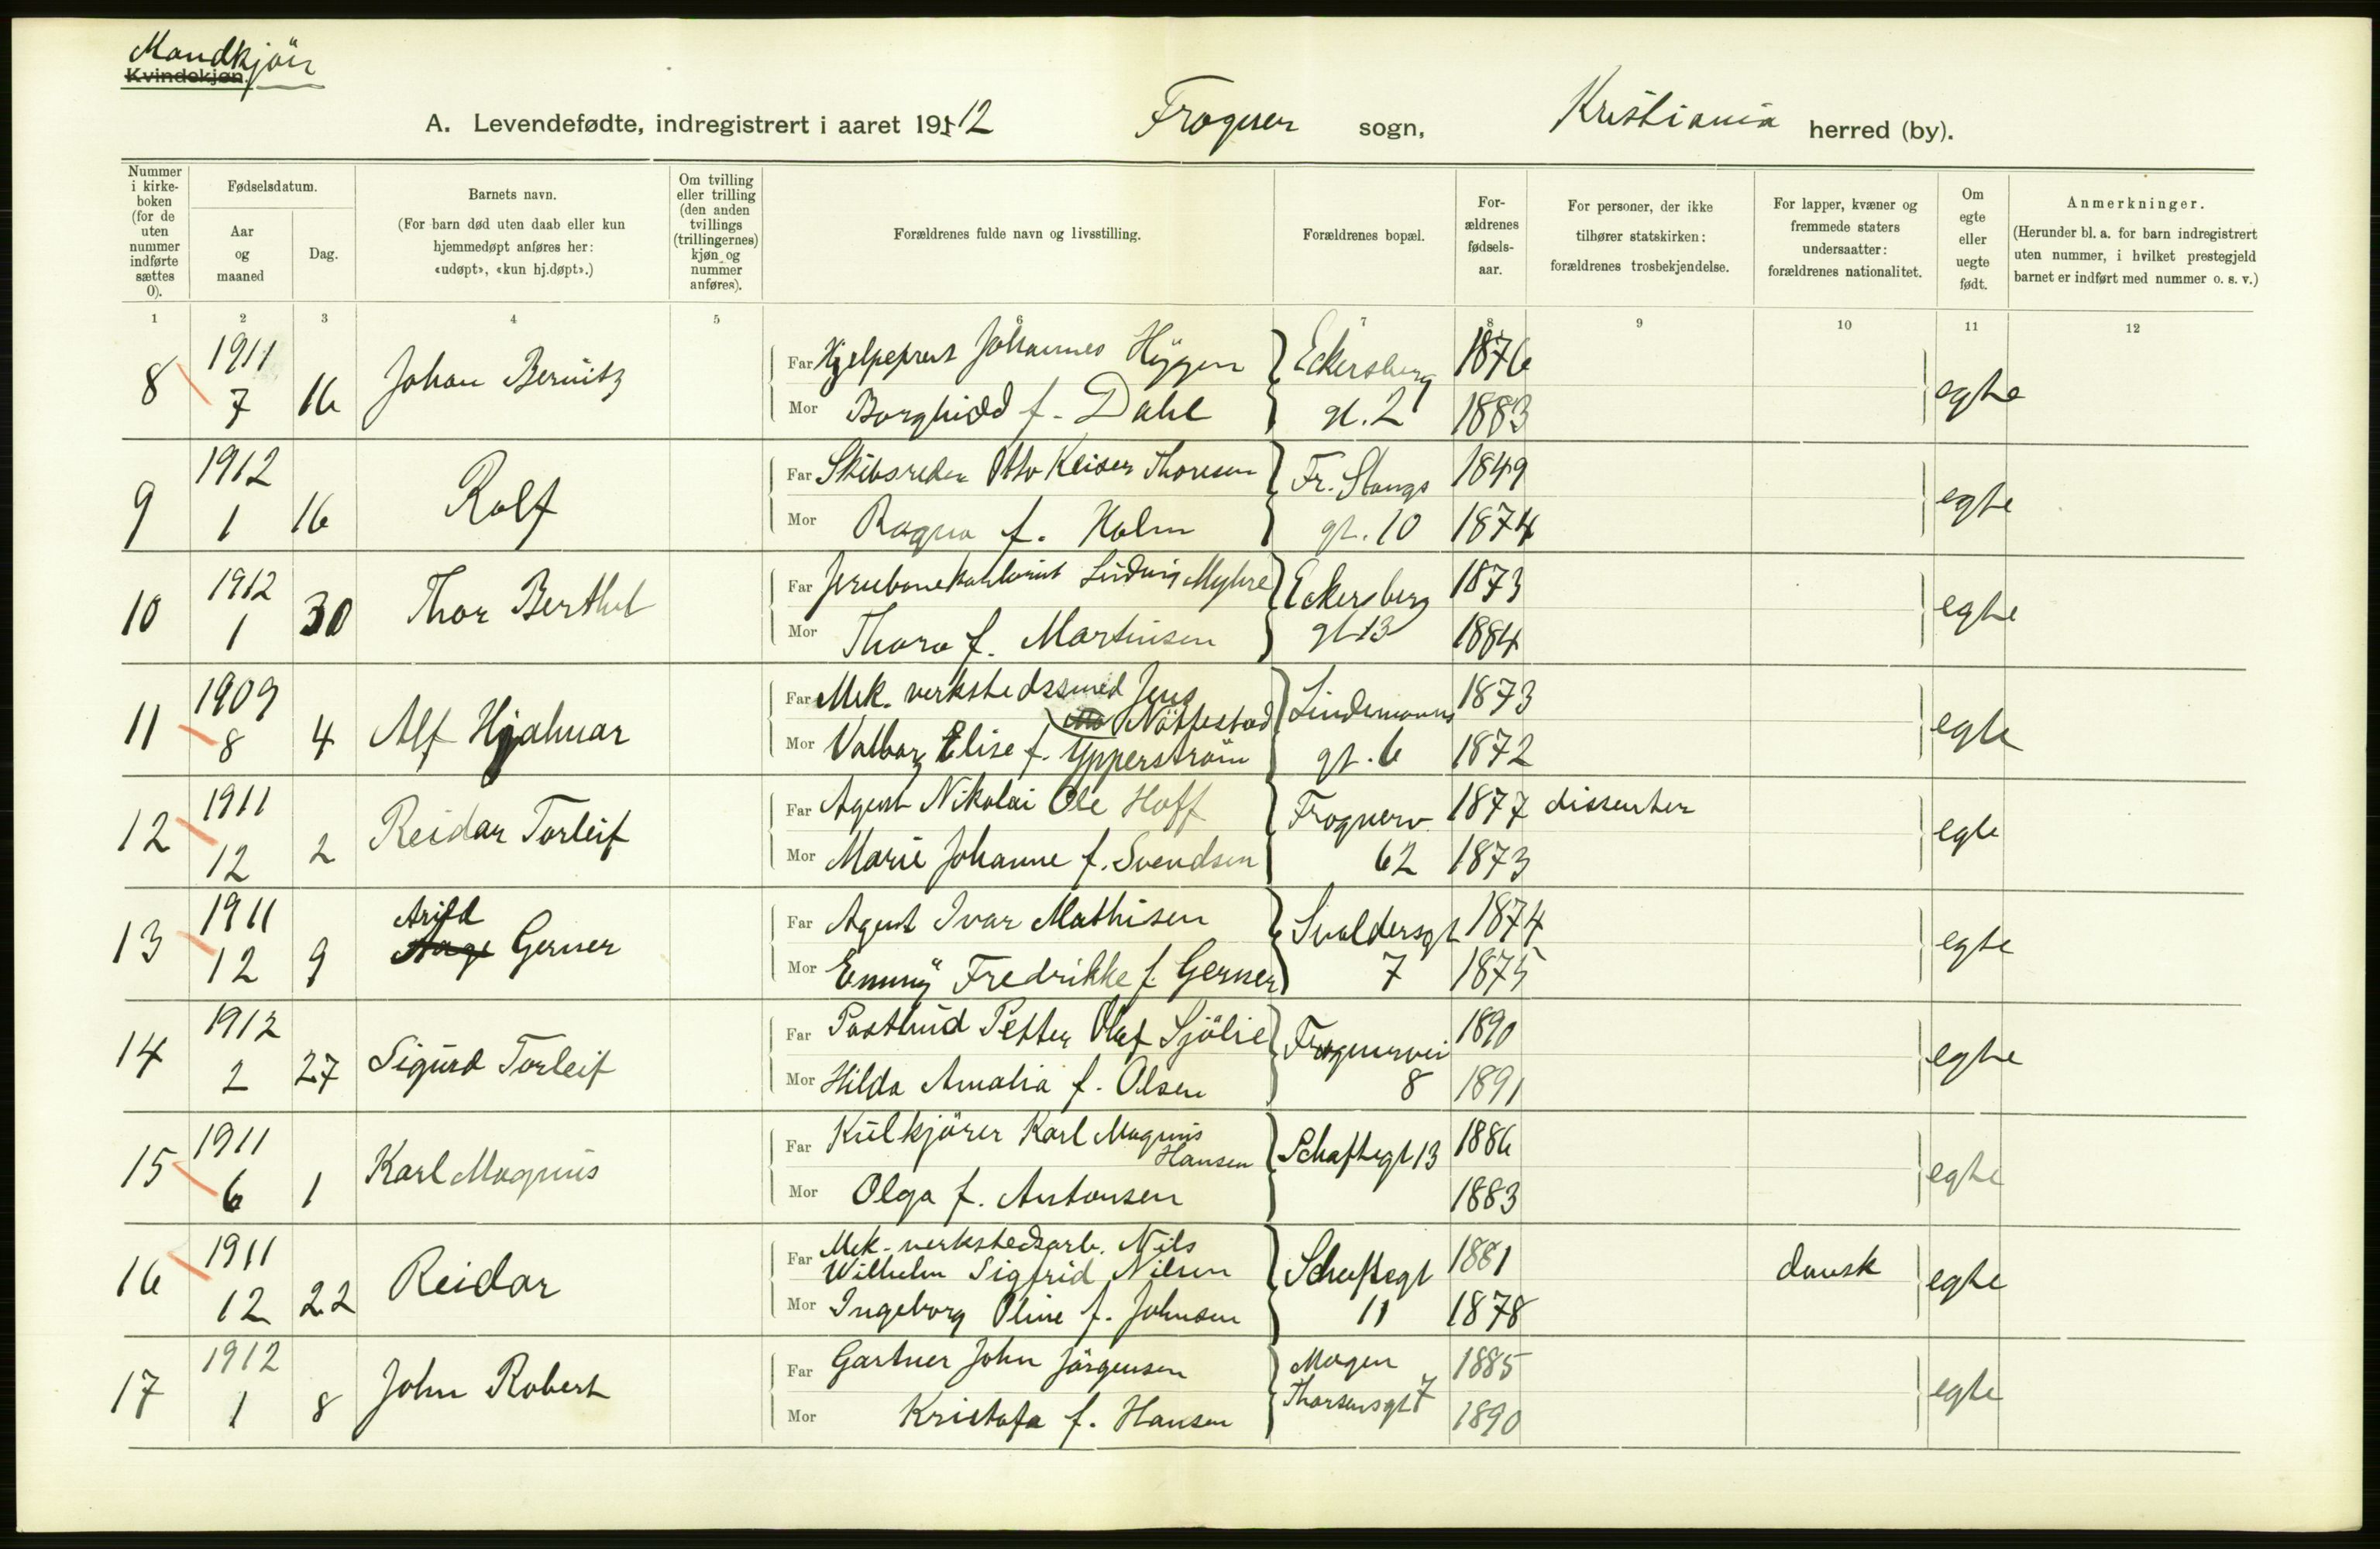 Mandkjön
Kvindekjøn.
A. Levendefødte, indregistrert i aaret 191 12 Frogner sogn, Kristiania herred (by).
Nummer i kirkeboken (for de uten nummer indførte sættes 0).
Fødselsdatum.
Aar og maaned
Dag.
Barnets navn.
(For barn død uten daab eller kun hjemmedøpt anføres her: «udøpt», «kun hj.døpt».)
Om tvilling eller trilling (den anden tvillings (trillingernes) kjøn og nummer anføres).
Forældrenes fulde navn og livsstilling.
Forældrenes bopæl.
Forældrenes fødselsaar.
For personer, der ikke tilhører statskirken: forældrenes trosbekjendelse.
For lapper, kvæner og fremmede staters undersaatter: forældrenes nationalitet.
Om egte eller uegte født.
Anmerkninger.
(Herunder bl. a. for barn indregistrert uten nummer, i hvilket prestegjeld barnet er indført med nummer o. s. v.)
1 2 3 4 5 6 7 8 9 10 11 12
8 1911 7 16 Johan Bernitz Far Hjelpeprest Johannes Hygen Eckersberg 1876 egte
Mor Borghild f. Dahl gt. 2 1883
9 1912 1 16 Rolf Far Skibsreder Otto Keiser Thoresen Fr. Stangs 1849 egte
Mor Ragna f. Holm gt. 10 1874
10 1912 1 30 Thor Berthel Far Jernbanekontorist Ludvig Myhre Eckersberg 1873 egte
Mor Thora f. Martinsen gt 13 1884
11 1909 8 4 Alf Hjalmar Far Mek. verkstedssmed Jens Nöttestad Lindemanns 1873 egte
Mor Valborg Elise f. Ypperström gt. 6 1872
12 1911 12 2 Reidar Torleif Far Agent Nikolai Ole Hoff Frognerv. 1877 dissenter egte
Mor Marie Johanne f. Svendsen 62 1873
13 1911 12 9 Arild Aage Gerner Far Agent Ivar Mathisen Svoldersgt 1874 egte
Mor Emmy Fredrikke f. Gerner 7 1875
14 1912 2 27 Sigurd Torleif Far Postbud Petter Olaf Sjölie Frognervei 1890 egte
Mor Hilda Amalia f. Olsen 8 1891
15 1911 6 1 Karl Magnus Far Kulkjörer Karl Magnus Hansen Schaftegt 13 1886 egte
Mor Olga f. Antonsen 1883
16 1911 12 22 Reidar Far Mek. verkstedsarb. Nils Wilhelm Sigfrid Nilsen Schaftegt 1881 dansk egte
Mor Ingeborg Oline f. Johnsen 11 1878
17 1912 1 8 John Robert Far Gartner John Jörgensen Mogen 1885 egte
Mor Kristofa f. Hansen Thorsensgt 7 1890